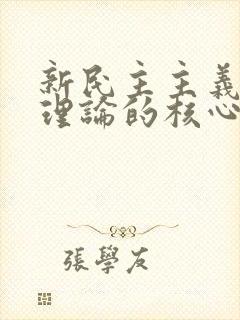 新民主主義
理論的核心
張學友